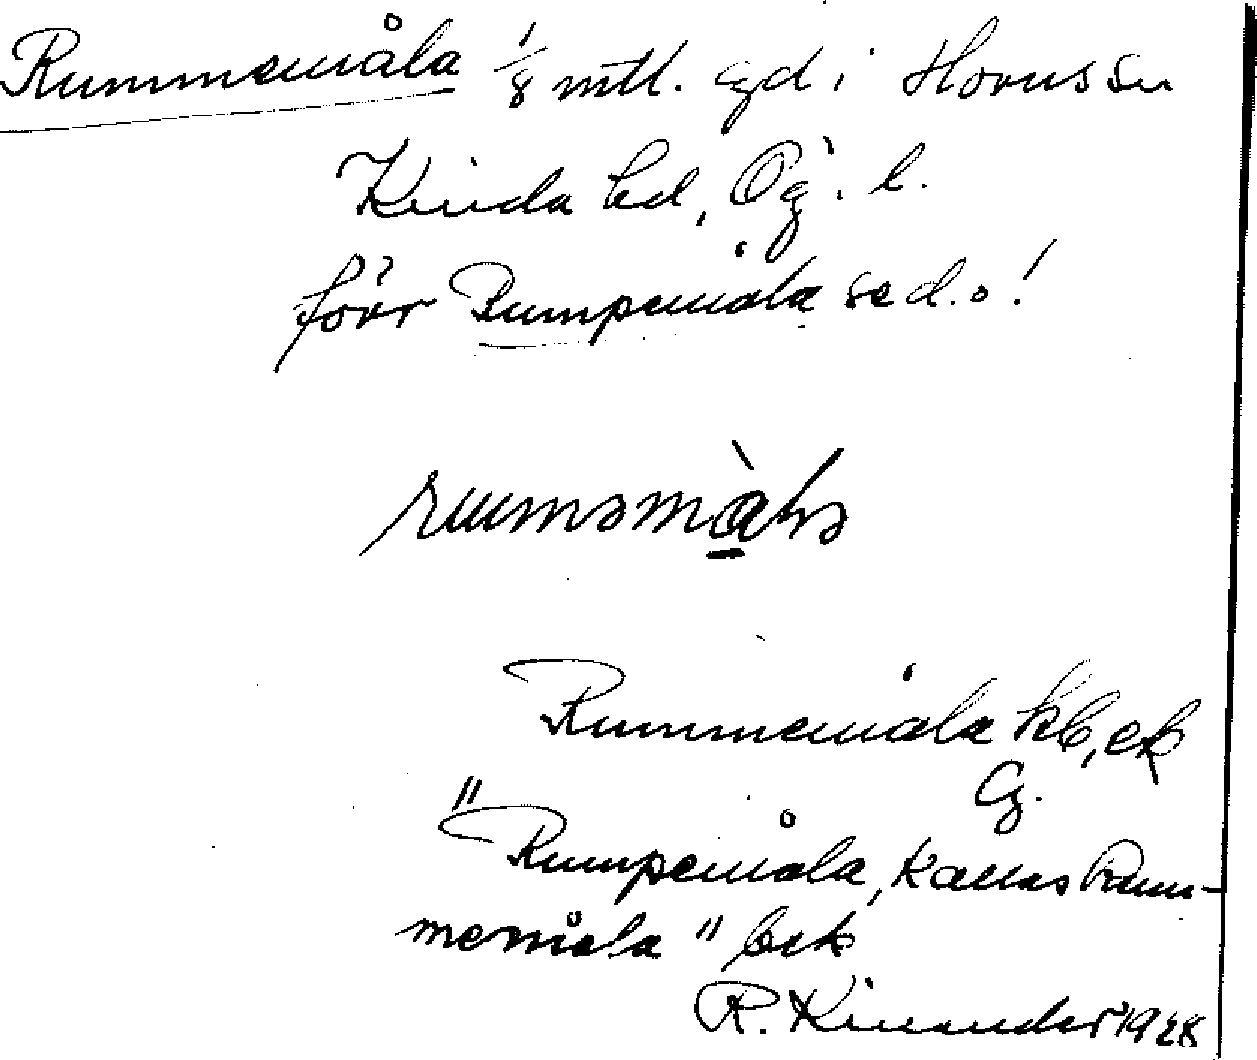 Rummemåla 1/8 mtl. gd i Horns sn
Kinda hd, Ög. l.
förr Rumpemåla se d.o!
ruməmàlа
Rummemåla kb, ek
G.
"Rumpemåla, kallas Rum-
memåla" bek
R. Kinander 1928